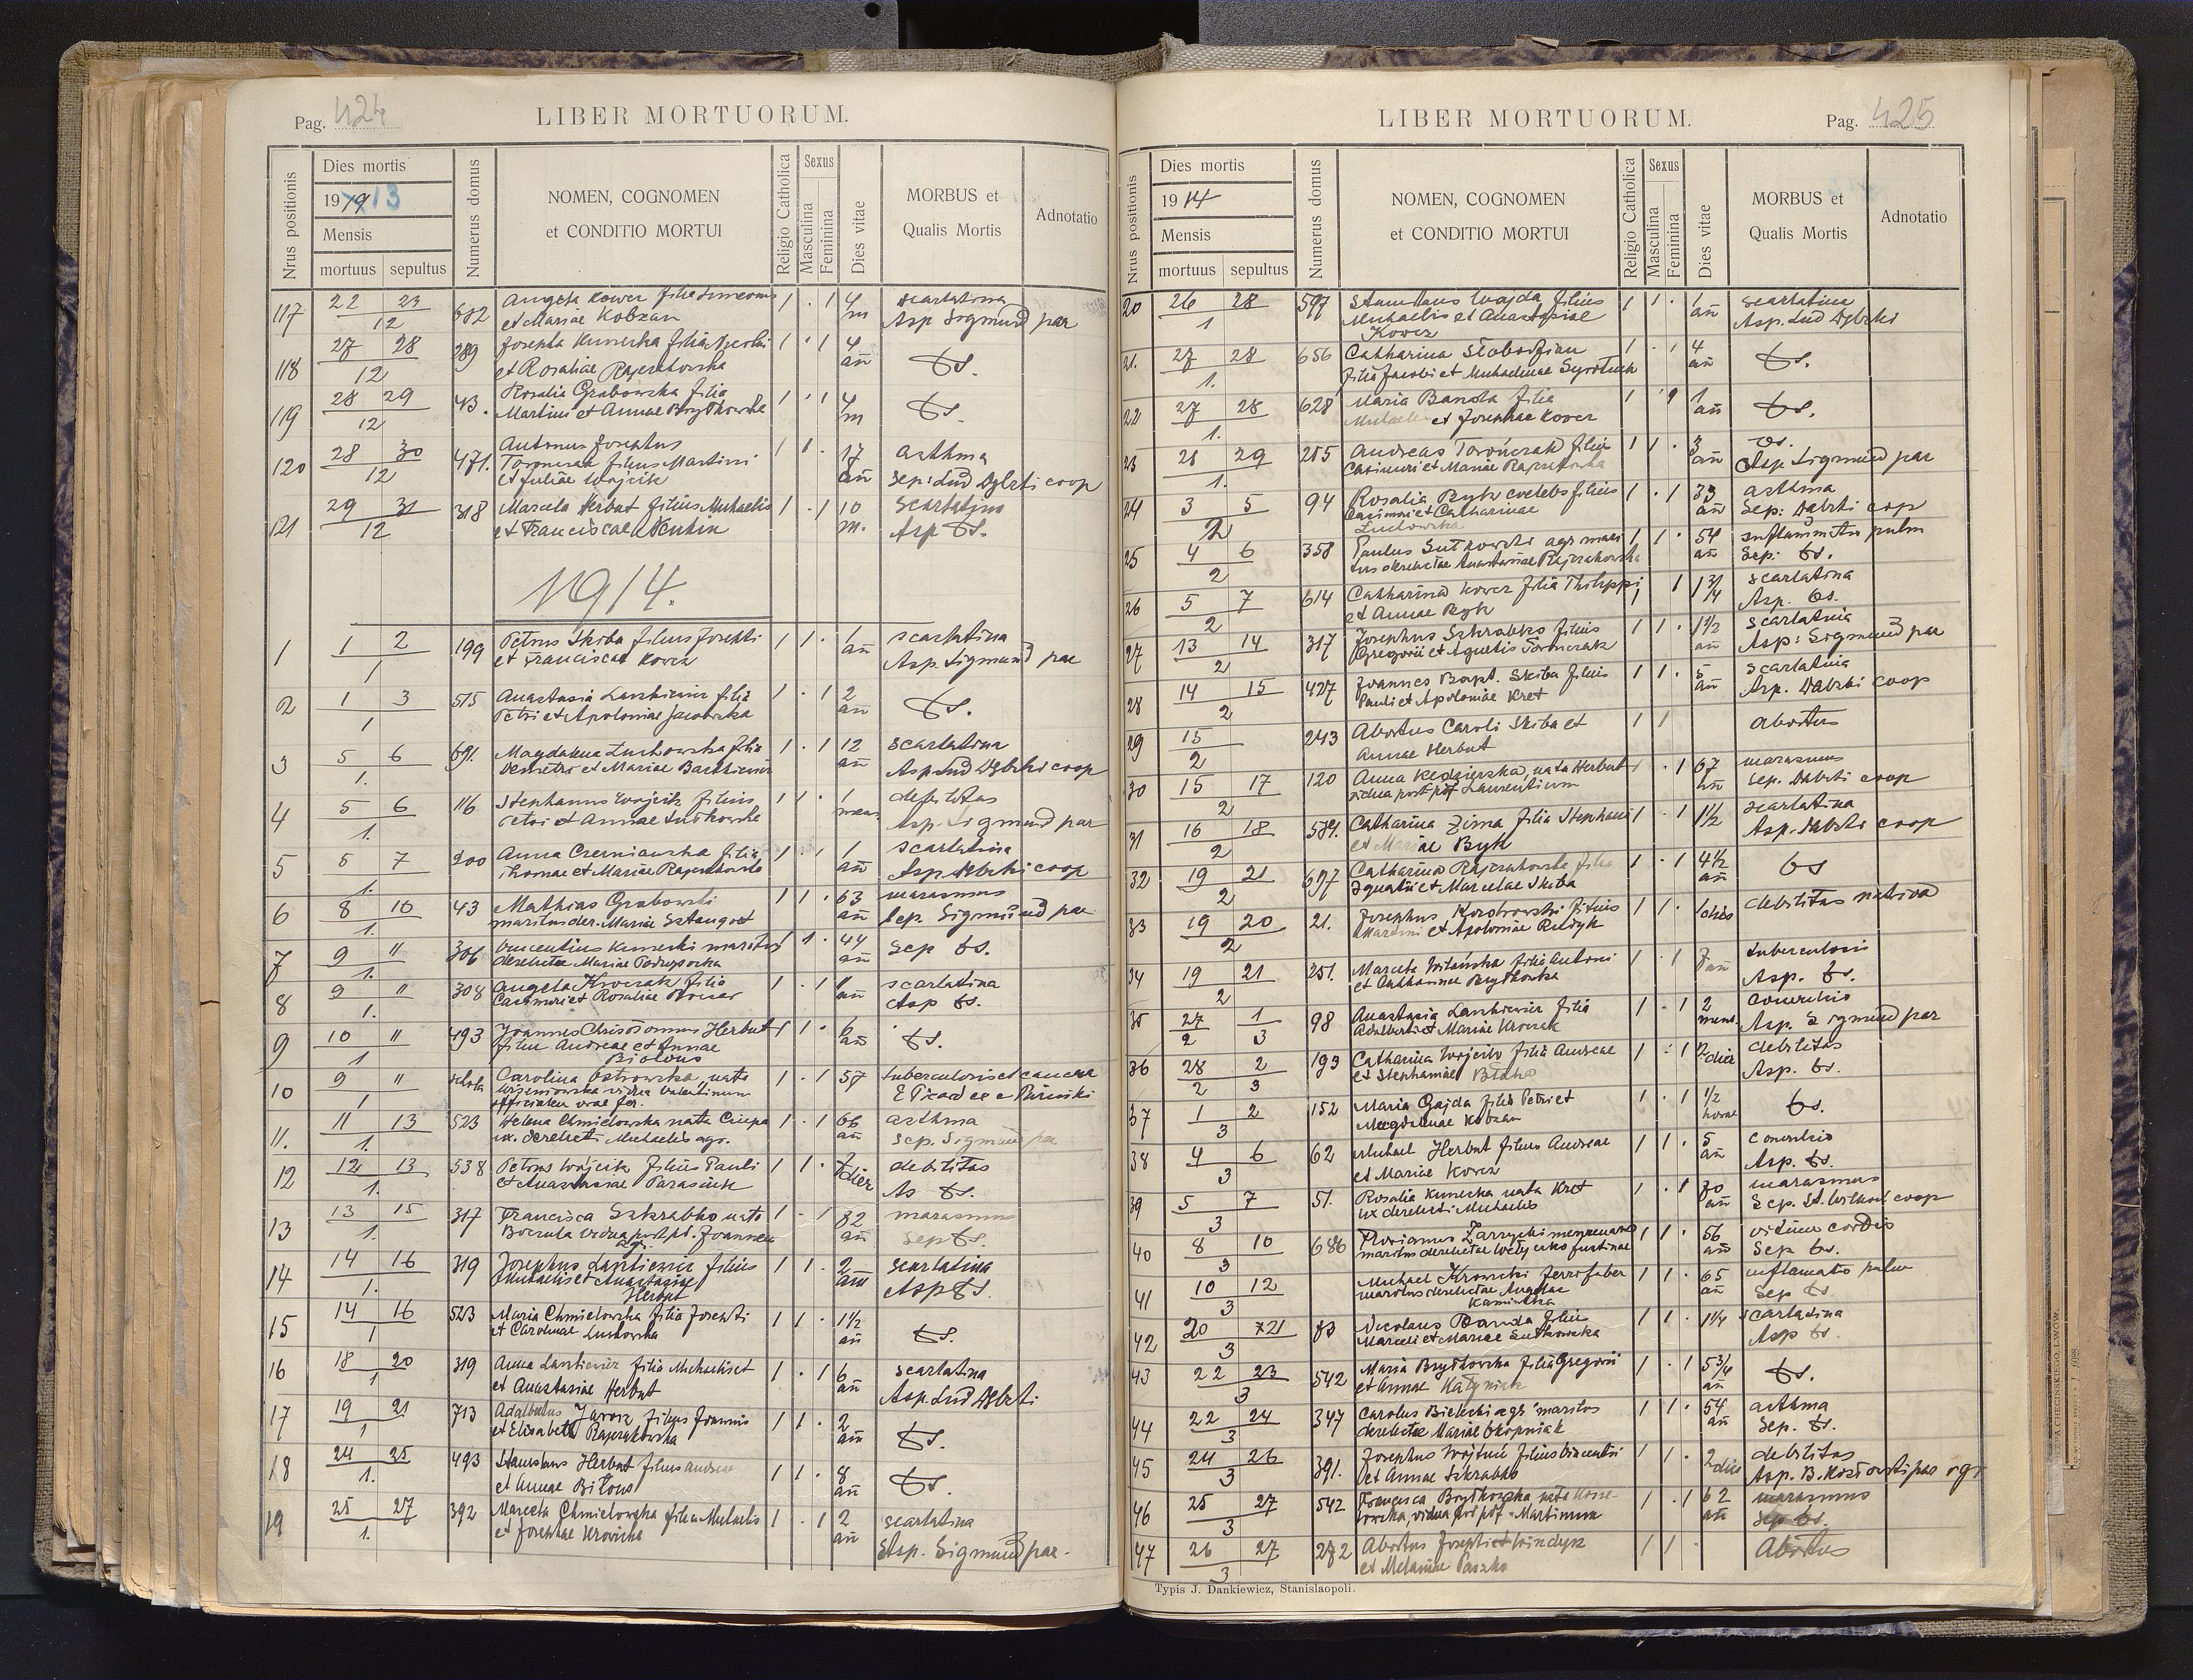 Pag. 424
LIBER MORTUORUM.
Nrus positionis
Dies mortis
1913
Mensis
mortuus sepultus
Numerus domus
NOMEN, COGNOMEN
et CONDITIO MORTUI
Religio Catholica
Sexus
Masculina
Feminina
Dies vitae
MORBUS et
Qualis Mortis
Adnotatio
117 22 23 12 682 Angela Kower filia Simeonis 1 . 1 4 m scarlatina
et Mariae Kobzan Asp Sigmund par
118 27 28 12 289 Josepha Kunecka filia Nicolai 1 . 1 4 an ts.
et Rosaliae Rajczakowska
119 28 29 12 43. Rosalia Grabowska filia 1 . 1 4 m ts.
Martini et Annae Brydkowska
120 28 30 12 471. Antonius Josephus 1 1 . 17 an asthma
Toronczak filius Martini Sep: Lud Dąbrki coop
et Juliae Wojcik
121 29 31 12 318 Marcela Herbut filius Michaelis 1 . 1 10 m. Scarlatina
et Franciscae Asp ts.
1914.
1 1 2 1 199 Petrus Skiba filius Josephi 1 1 . 1 an scarlatina
et Franciscae Kower Asp. Sigmund par
2 1 3 1 515 Anastasia Laszkiewicz filia 1 . 1 2 an ts.
Petri et Apoloniae
3 5 6 1. 691. Magdalena Luchowska filia 1 . 1 12 an scarlatina
Demetri et Mariae Asp Lud Dąbrki coop
4 5 6 1. 116 Stephanus Wojcik filius 1 1 . 1 mens debilitas
Petri et Annae Sutkowska Asp. Sigmund par
5 5 7 1. 200 Anna Czerniawska filia 1 . 1 1 an scarlatina
Thomae et Mariae Rajczakowska Asp Dąbrki coop
6 8 10 1. 43 Mathias Grabowski 1 1 . 63 an marasmus
maritus der. Mariae Sztangret Sep. Sigmund par
7 9 11 1. 306 Vincentius Kunecki maritus 1 1 . 44 an Sep ts.
derelictae Mariae
8 9 11 1. 308 Angela Krocrak filia 1 . 1 1 an scarlatina
Casimiri et Rosaliae Asp ts.
9 10 11 1 493 Joannes Chrisostomus Herbut 1 1 . 6 an ts.
filius Andreae et Annae
Bilous
10 9 11 1 Carolina Ostrowska nata 1 . 1 57 tuberculosis et cancer
Wiszniowska vidua Valentinum
11. 11 13 1. 523 Helena Chmielowska nata 1 . 1 66 an asthma
ux. derelicti Michaelis agr. Sep. Sigmund par
12 12 13 1. 538 Petrus Wojcik filius Pauli 1 1 . 7 dier debilitas
et Anastasiae Parasiuk As ts.
13 13 15 1. 317 Francisca Szkrabko nata 1 . 1 82 an marasmus
vidua post pd. Joannem Sep ts.
14 14 16 1. 319 Josephus Laszkiewicz filius 1 1 . 2 an scarlatina
Michaelis et Anastasiae Asp ts.
Herbut
15 14 16 1 523 Maria Chmielowska filia Josephi 1 1 . 1½ an ts.
et Carolinae Luchowska
16 18 20 1 319 Anna Laszkiewicz filia Michaelis et 1 . 1 6 an scarlatina
et Anastasiae Herbut Asp. Lud Dąbrki
17 19 21 1 713 Adalbertus Jarosz filius Joannis 1 1 . 2 an ts.
et Elisabeth Rajczakowska
18 24 25 1. 493 Stanislaus Herbut filius Andreae 1 1 . 8 an ts.
et Annae Bilous
19 25 27 1. 392 Marcela Chmielowska filia Michaelis 1 . 1 2 an scarlatina
et Josephae Krowicka Asp. Sigmund par.
LIBER MORTUORUM.
Pag. 425
Nrus positionis
Dies mortis
1914
Mensis
mortuus sepultus
Numerus domus
NOMEN, COGNOMEN
et CONDITIO MORTUI
Religio Catholica
Sexus
Masculina
Feminina
Dies vitae
MORBUS et
Qualis Mortis
Adnotatio
20 26 28 1 597 Stanislaus Wajda filius 1 1 . 1 an scarlatina
Michaelis et Anastasiae Asp. Lud Dąbrki
Kower
21. 27 28 1. 656 Catharina Słobodzian 1 . 1 4 an ts.
filia Jacobi et Michaelinae
22 27 28 1. 628 Maria Banda filia 1 1 1 an ts.
Michaelis et Josephae Kower
23 28 29 1. 285 Andreas Toronczak filius 1 1 . 3 an ts.
Casimiri et Mariae Rajczakowska Asp. Sigmund par
24 3 5 2 94 Rosalia Byk coelebs filius 1 . 1 33 an asthma
Casimiri et Catharinae Sep: Dąbrki coop
Luchowska
25 4 6 2 358 Paulus Sutkowski agr mari 1 1 . 54 an inflammatio pulm
tus derelictae Anastasiae Rajczakowska Sep: ts.
26 5 7 2 614 Catharina Kower filia Philippi 1 1 1¾ scarlatina
et Annae Byk Asp. ts.
27 13 14 2 317 Josephus Szkrabko filius 1 1 . 1½ an scarlatina
Gregorii et Agnetis Toronczak Asp: Sigmund par
28 14 15 2 427 Joannes Bapt. Skiba filius 1 1 . 5 an scarlatina
Pauli et Apoloniae Kret Asp. Dąbrki coop
29 15 2 243 Abortus Caroli Skiba et 1 1 abortus
Annae Herbut
30 15 17 2 120 Anna Kędzierska, nata Herbut 1 . 1 67 an marasmus
vidua post pdf Laurentium Sep. Dąbrki coop
31 16 18 2 589. Catharina Zima filia Stephani 1 . 1 1½ scarlatina
et Mariae Byk Asp. Dąbrki coop
32 19 21 2 697 Catharina Rajczakowska filia 1 . 1 4½ an ts
Ignatii et Marcelae Skiba
33 19 20 2 21. Josephus filius 1 1 . 1 dies debilitas nativa
et Apoloniae
34 19 21 2 251. Marcela filia Antoni 1 . 1 7 an tuberculosis
et Catharinae Brydkowska Asp. ts.
35 27 1 2 3 98 Anastasia Laszkiewicz filia 1 . 1 2 mens. convulsio
Adalberti et Mariae Krocrak Asp. Sigmund par
36 28 2 2 3 193 Catharina Wojcik filia Andreae 1 . 1 2 dier debilitas
et Stephaniae Asp. ts.
37 1 2 3 152 Maria Gajda filia Petri et 1 . 1 1/2 horae ts.
Magdalenae Kobzan
38 4 6 3 62 Michael Herbut filius Andreae 1 1 . 5 an convulsio
et Mariae Kower Asp. ts.
39 5 7 3 51. Rosalia Kunecka nata Kret 1 . 1 70 an marasmus
ux derelicti Michaelis Sep. coop
40 8 10 3 686 Florianus Zarzycki 1 1 . 56 an vitium cordis
maritus derelictae Justinae Sep ts.
41 10 12 3 Michael Krowicki ferrifaber 1 1 . 65 an inflamatio pulm
maritus derelictae Angelae Sep ts.
Kaminska
42 20 21 3 83 Nicolaus Banda filius 1 1 . 1¼ scarlatina
Marceli et Mariae Sutkowska Asp ts.
43 22 23 3 542 Maria Brydkowska filia Gregorii 1 . 1 5¾ an ts.
et Annae
44 22 24 3 347 Carolus Bielecki agr maritus 1 1 . 54 an asthma
derelictae Mariae Skopniak Sep. ts.
45 24 26 3 391. Josephus filius Vincentii 1 1 . 2 dies debilitas
et Annae Szkrabko Asp. B. Kozłowski par
46 25 27 3 542 Francisca Brydkowska nata 1 . 1 62 an marasmus
vidua post pdf Martinum Sep ts.
47 26 27 3 272 Abortus Josephi et Windyk 1 1 . Abortus
et Melaniae Paszko
Typis J. Dankiewicz, Stanislaopoli.